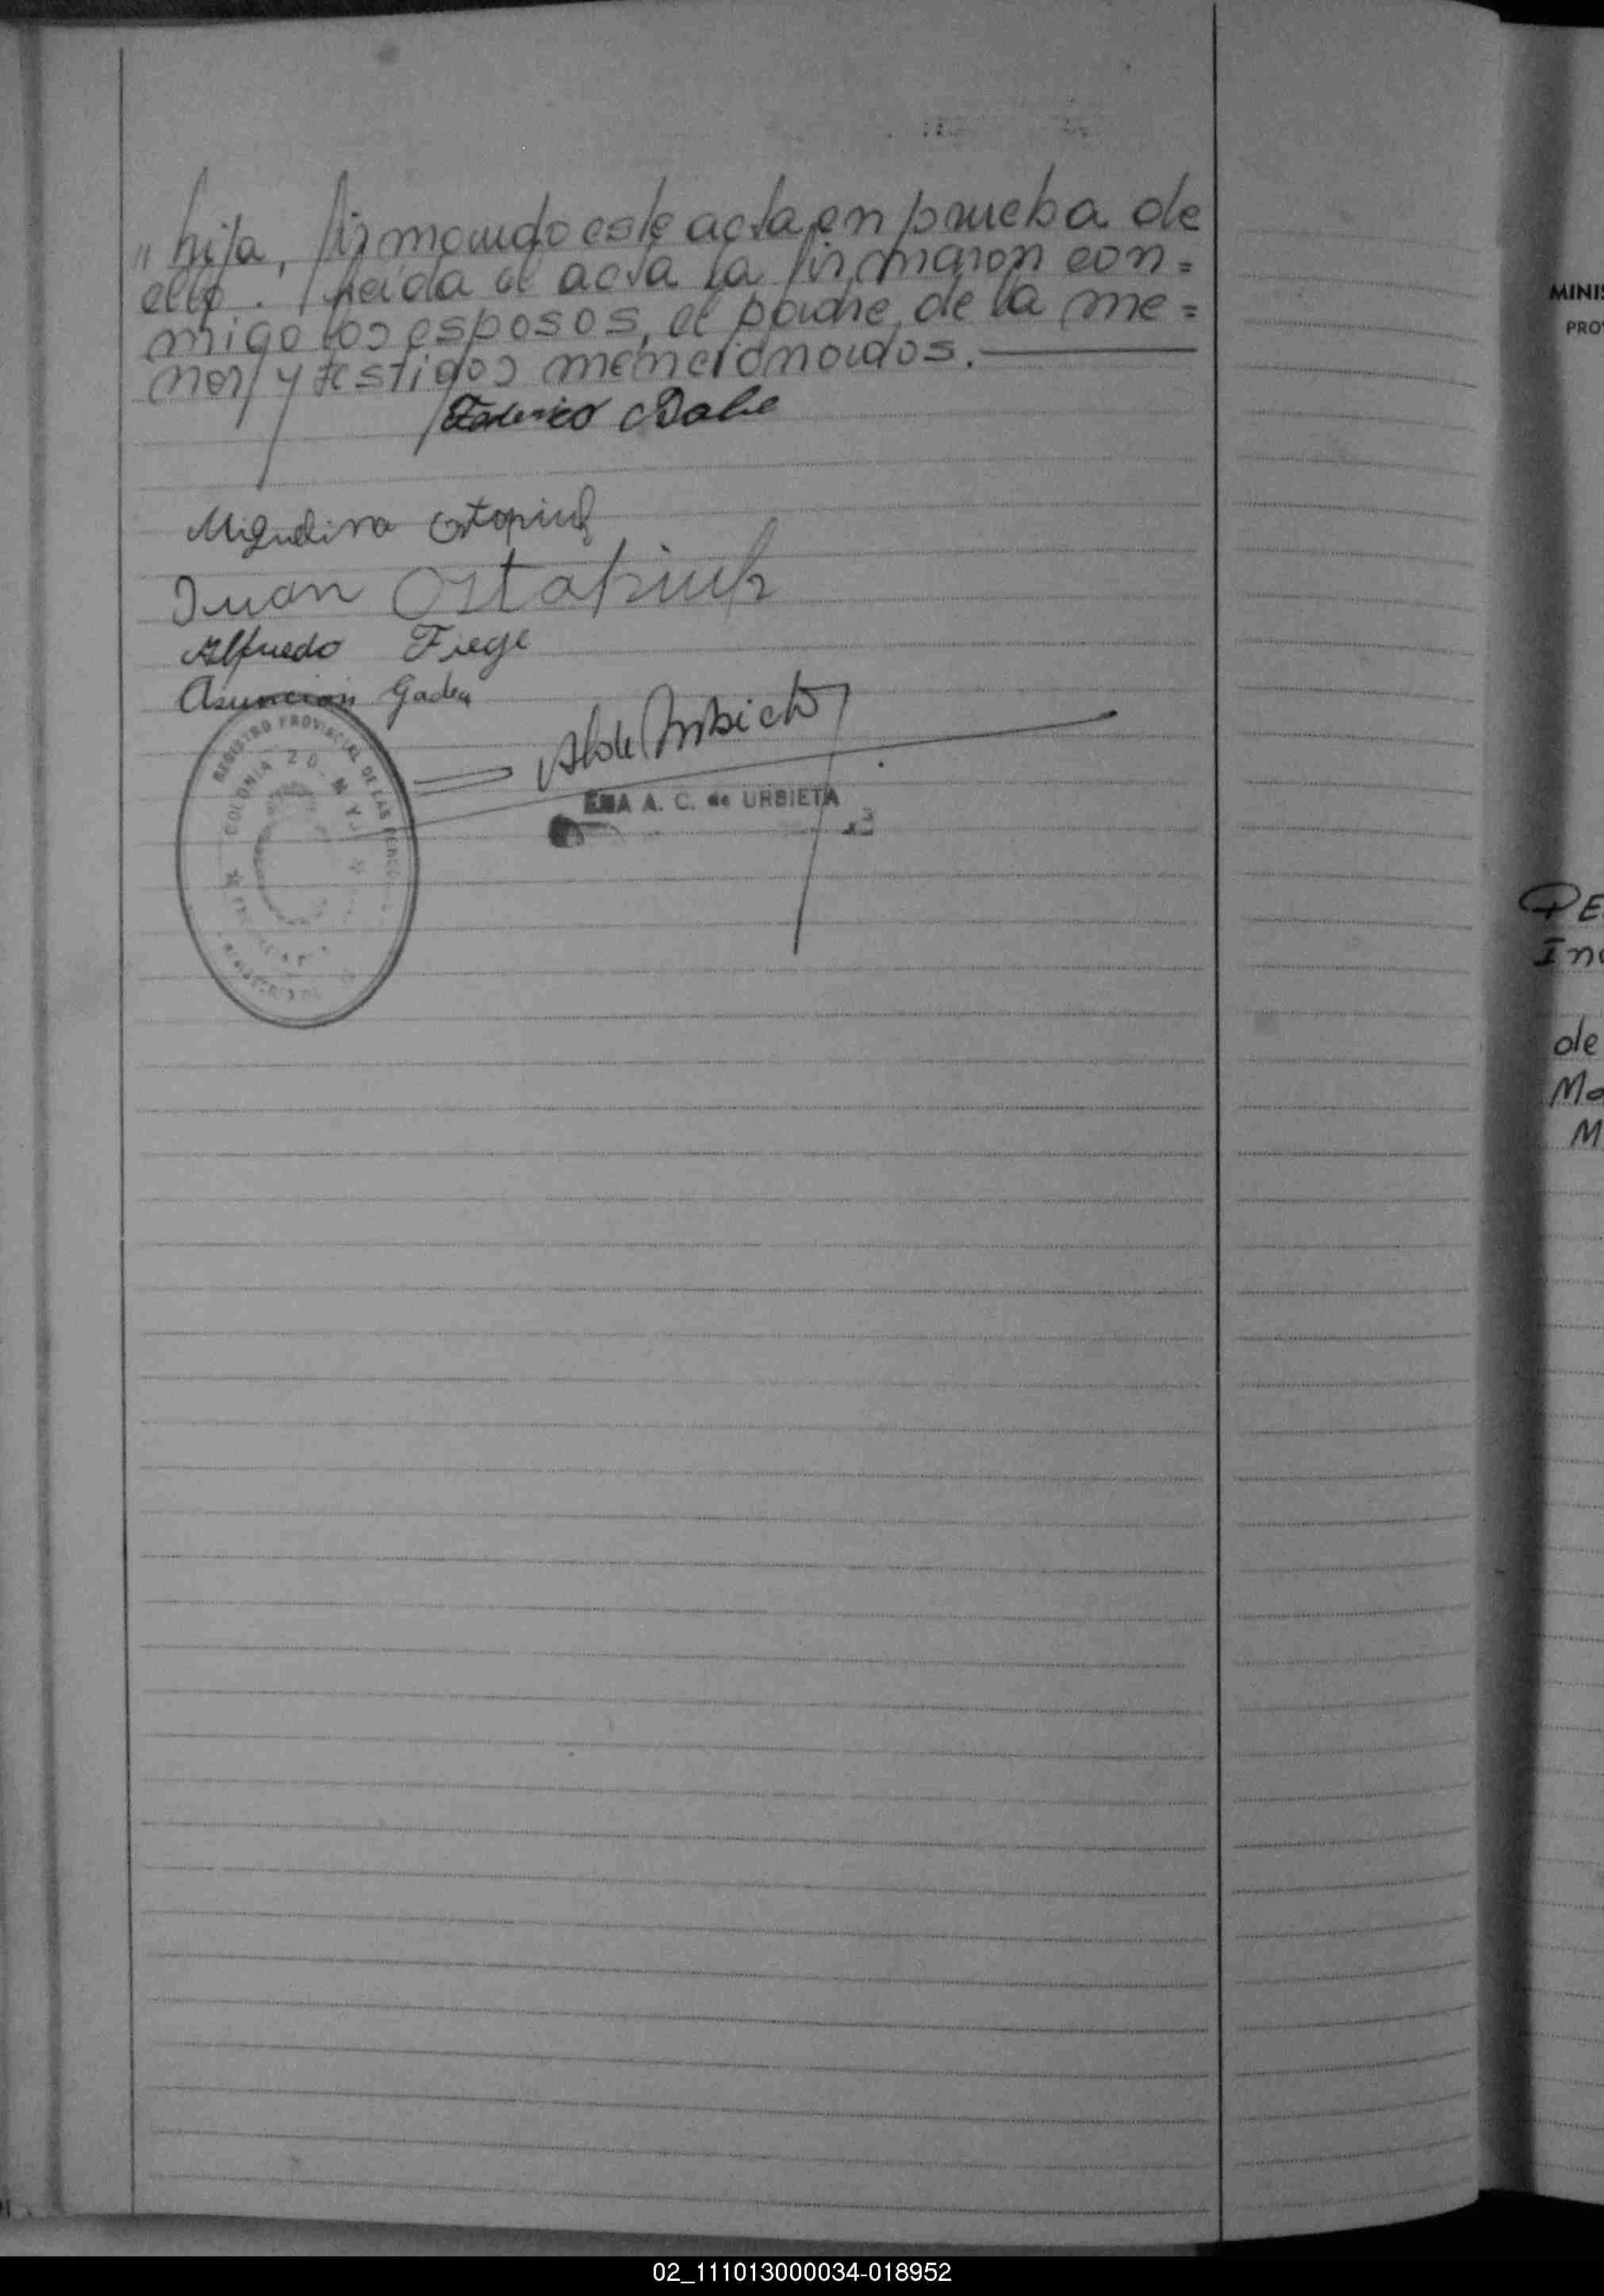 " hija, firmando este acta en prueba de
ello. Leída el acta la firmaron con=
migo los esposos, el padre de la me=
nor y testigos mencionados.
Federico
Miguelina Ostapiuk
Juan Ostapiuk
Alfredo Fiege
Asunción
REGISTRO PROVINCIAL DE LAS
COLONIA 20
EMA A. C. de URBIETA
MINIS
PRO
PE
In
de
Ma
M
02_111013000034-018952